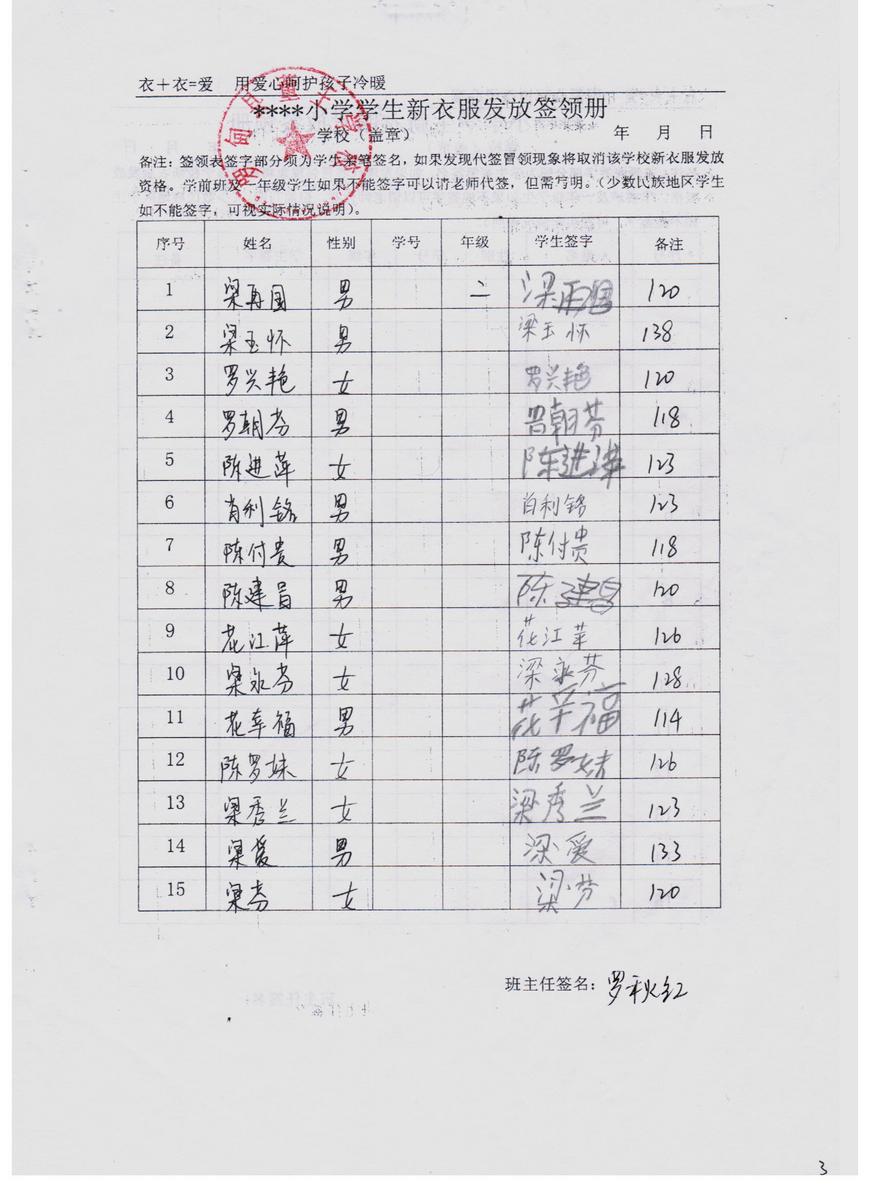 衣＋衣=爱 用爱心呵护孩子冷暖
****小学学生新衣服发放签领册
学校（盖章） 年 月 日
备注：签领表签字部分须为学生亲笔签名，如果发现代签冒领现象将取消该学校新衣服发放
资格。学前班及一年级学生如果不能签字可以请老师代签，但需写明。（少数民族地区学生
如不能签字，可视实际情况说明）。
序号 姓名 性别 学号 年级 学生签字 备注
1 梁再国 男 二 梁雨国 120
2 梁玉怀 男 梁玉怀 138
3 罗兴艳 女 罗兴艳 120
4 罗朝芬 男 罗朝芬 118
5 陈进萍 女 陈进萍 123
6 肖利铭 男 肖利铭 123
7 陈付贵 男 陈付贵 118
8 陈建昌 男 陈建昌 120
9 花江萍 女 花江苹 126
10 梁永芬 女 梁永芬 128
11 花幸福 男 花辛福 114
12 陈罗妹 女 陈罗妹 126
13 梁秀兰 女 梁秀兰 123
14 梁爱 男 梁爱 133
15 梁芬 女 梁芬 120
班主任签名：罗秋红
3